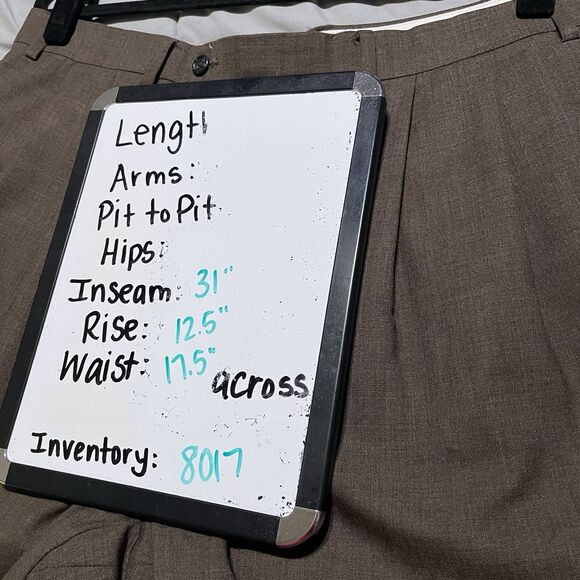 Lengtl
Arms:
Pit to Pit
Hips:
Inseam: 31"
Rise: 12.5"
Waist: 17.5"
across
Inventory: 8017